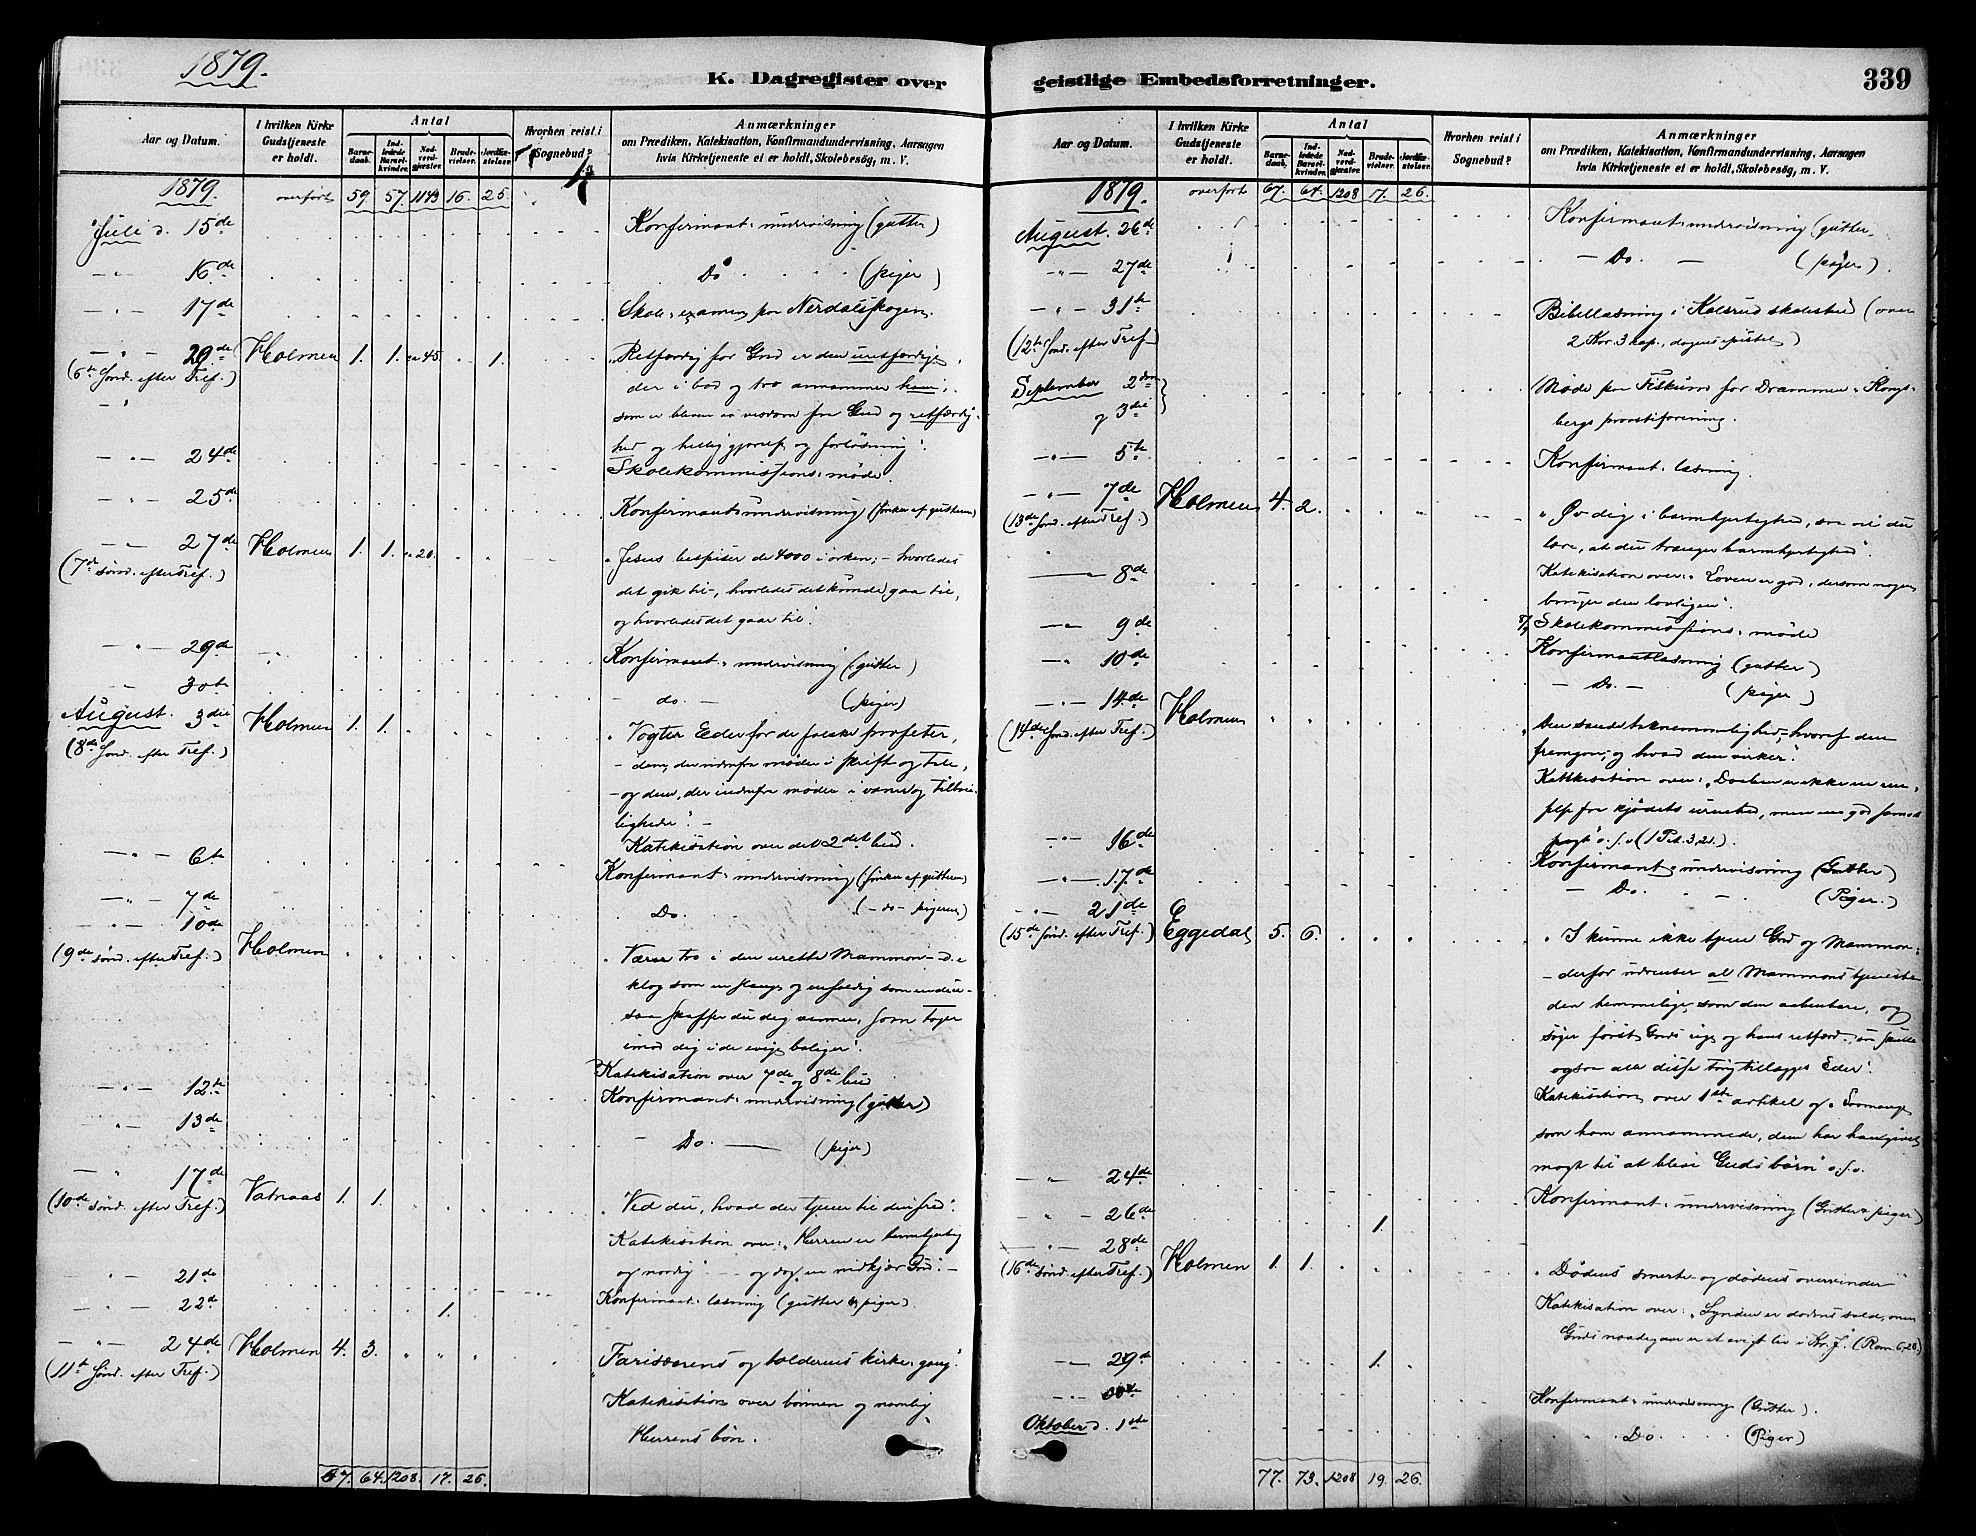 1879.
K. Dagregister over
Aar og Datum.
I hvilken Kirke Gudstjeneste er holdt.
Antal
Barnedaab.
Indledede Barselkvinder.
Nadverdgjæster.
Brudevielser.
Jordfæstelser.
Hvorhen reist i Sognebud?
Anmærkninger
om Prædiken, Katekisation, Konfirmandundervisning, Aarsagen
hvis Kirketjeneste ei er holdt, Skolebesøg, m. V.
1879. overført 59. 57. 1143 16. 25.
Juli d. 15de Konfirmant-undervisning (gutter)
16de Do (piger)
17de Skole-examen paa Nerdalsskogen.
20de Holmen 1. 1. 45. 1. "Retfærdig for Gud er den uretfærdige,
(6te Sønd. efter Tref.) der i bod og tro annammer ham,
som er bleven os visdom fra Gud og retfærdig-
hed og helliggjørelse og forløsning".
24de Skolekommissions-møde.
25de Konfirmantundervisning
27de Holmen 1. 1. 20. "Jesus bespiser de 4000 i ørken; - hvorledes
(7de sønd. efter Tref.) det gik til-, hvorledes det kunde gaa til,
og hvorledes det gaar til".
29de Konfirmant-undervisning (gutter)
30te do. (piger)
August. 3die Holmen 1. 1. "Vogter Eder for de falske profeter,
(8de Sønd. efter Tref.) - dem, der udenfra møder i skrift og tale,
- og dem, der indenfra møder i vaner og tilbøie-
ligheder". -
Katekisation over det 2det bud.
6te Konfirmant-undervisning
7de Do. (- do - pigerne)
10de Holmen
(9de sønd. efter Tref.) "Værer tro i den urette Mammon - D.e.
klog som en slange og enfoldig som en due -
saa skaffer du dig venner, som tager
imod dig i de evige boliger".
Katekisation over 7de og 8de bud
12te Konfirmant-undervisning (gutter)
13de Do. (piger)
17de Vatnaas 1. 1. "Ved du, hvad der tjener til din fred".
(10de sønd. efter Tref.) Katekisation over: "Herren er barmhjertig
og naadig" - og dog en nidkjær Gud". -
21de Konfirmant-læsning (gutter & piger).
22de 1.
24de Holmen 4. 3. "Farisæerens og tolderens kirke-gang".
(11te Sønd. efter Tref.)
Katekisation over bønnen og navnlig
Herrens bøn.
67. 64. 1208. 17. 26.
geistlige Embedsforretninger.
339
Aar og Datum.
I hvilken Kirke Gudstjeneste er holdt.
Antal
Barnedaab.
Indledede Barselkvinder.
Nadverdgjæster.
Brudevielser.
Jordfæstelser.
Hvorhen reist i Sognebud?
Anmærkninger
om Prædiken, Katekisation, Konfirmandundervisning, Aarsagen
hvis Kirketjeneste ei er holdt, Skolebesøg, m. V.
1879. overført 67. 64. 1208 17. 26.
August. 26de Konfirmant-undervisning (gutter.
27de Do. (piger).
31te Bibellæsning i Kolsrud skolested (over
(12te Sønd. efter Tref. 2 Kor. 3 kap., dagens epistel)
September 2den Møde paa Fiskum for Drammen-Kongs-
og 3die bergs provstiforening.
5te Konfirmant-læsning.
7de Holmen 4. 2.
(13de Sønd. efter Tref.) "Øv dig i barmhjertighed, saa vil du
lære, at du trænger barmhjertighed".
8de Katekisation over: "Loven er god, dersom nogen
bruger den lovligen".
9de 8/9 Skolekommissions-møde
10de Konfirmantlæsning (gutter)
Do. (piger)
14de Holmen
(14de Sønd. efter Tref.) "Den sande taknemmelighed, hvoraf den
fremgaar, og hvad den virker".
Katekisation over: "Daaben er ikke
kjødets urenhed, men en god samvit-
pagt" o.s.v (1 Pet. 3,21.)
16de Konfirmant-undervisning (Gutter)
17de Do. (Piger.)
21de Eggedal 5. 6. "I kunne ikke tjene Gud og Mammon -
(15de Sønd. efter Tref.) - derfor al Mammons tjeneste
den hemmelige, som den aabenbare, og
søger først Guds rige og hans retfærd. -
ogsaa alle disse ting tillægges Eder".
Katekisation over 1ste artikel og "Saamange,
som ham annammede, dem har han givet
magt til at blive Guds børn" o.s.v.
24de Konfirmant-undervisning (Gutter & piger)
26de 1.
28de Holmen 1. 1.
(16de sønd. efter Tref.) "Dødens smerte og dødens overvinder"
Katekisation over: "Synden er dødens sold, men
Guds naadegave er et evigt liv i Kr. J." (Rom. 6,23.)
29de 1.
Konfirmant-undervisning (Gutter).
Oktober d. 1ste Do (Piger)
77. 73. 1208 19. 26.